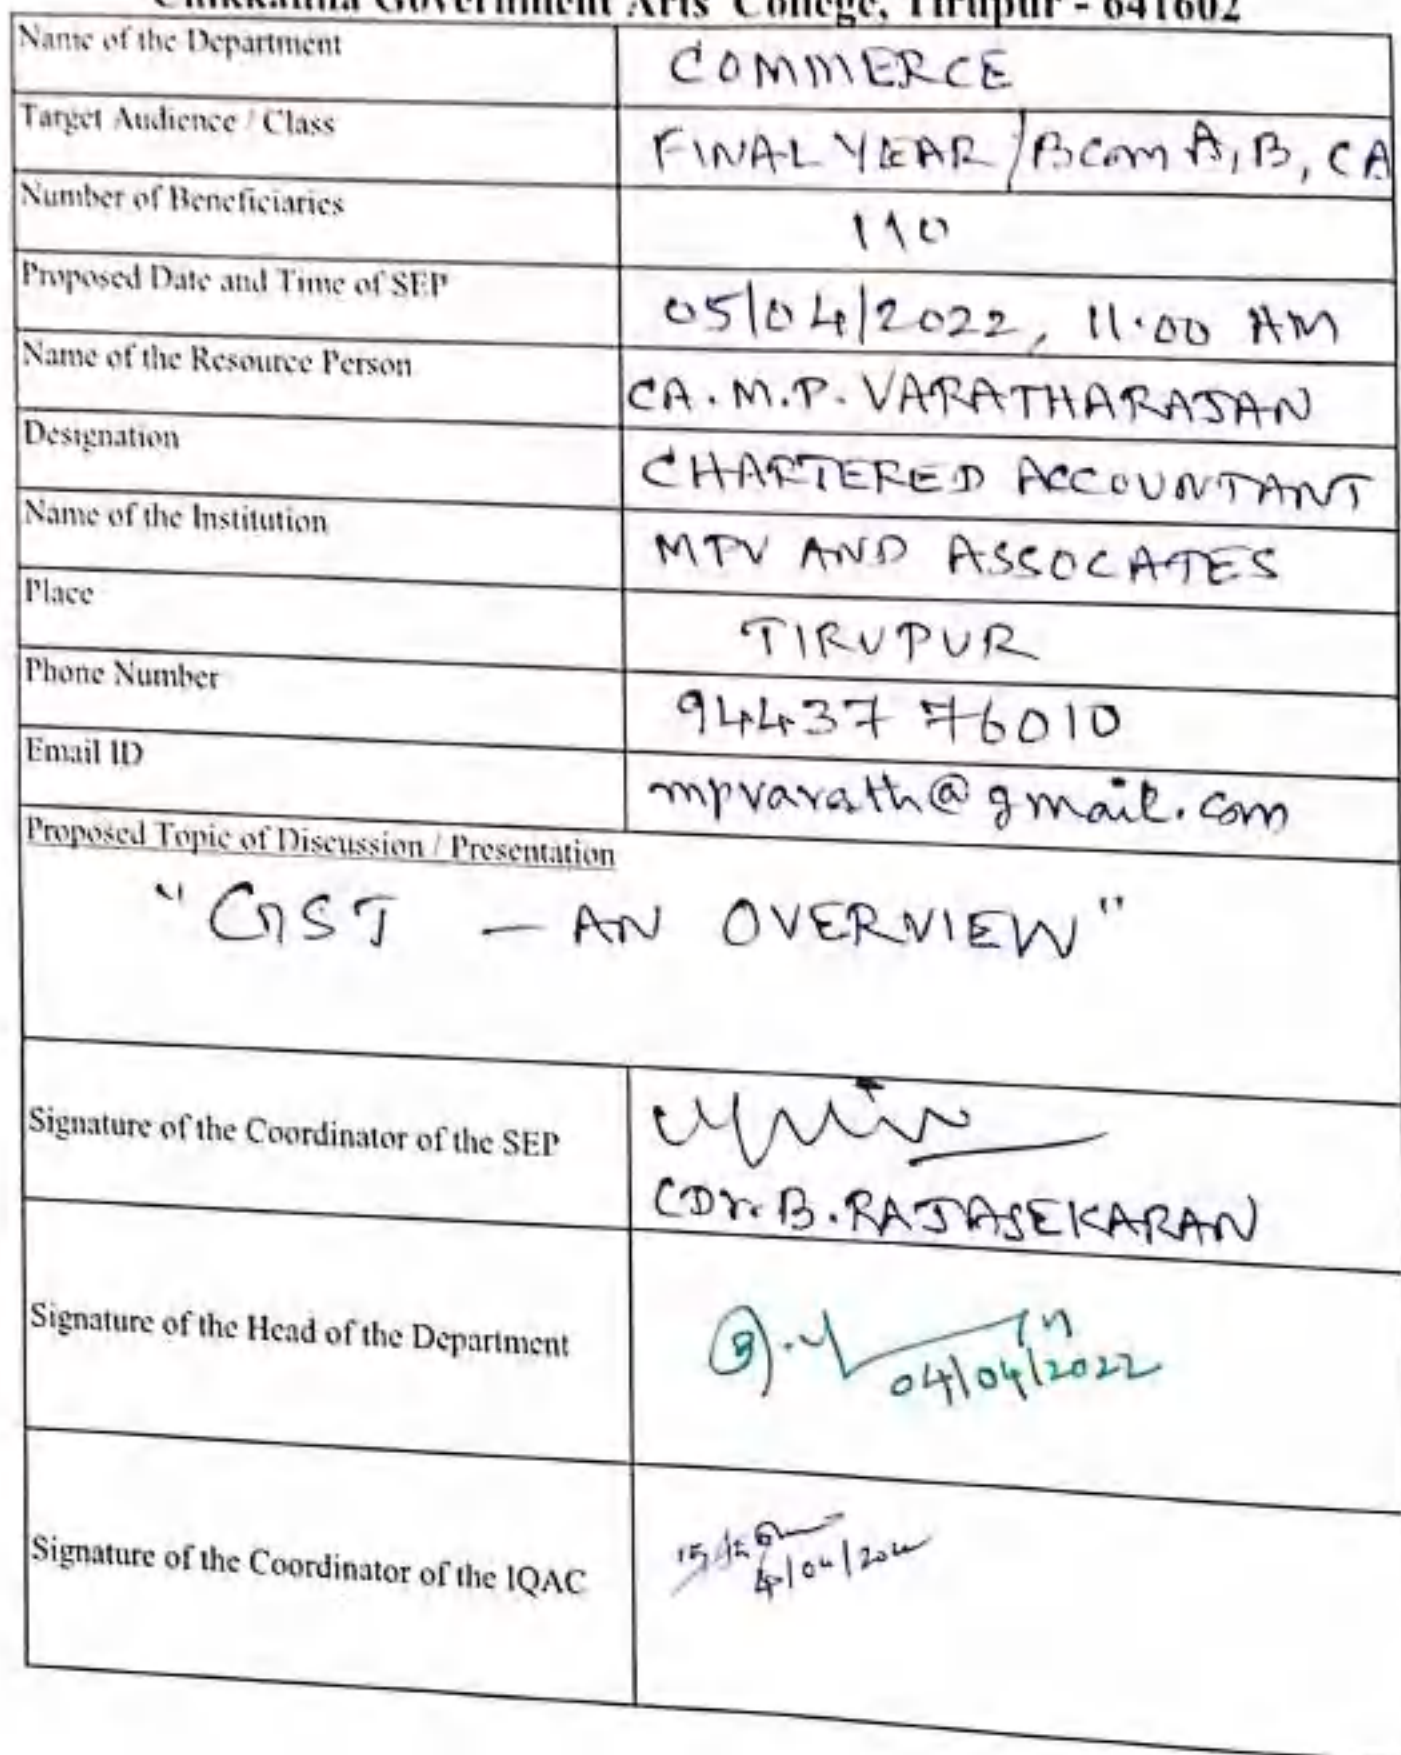 Chikkanna Government Arts College, Tirupur - 641602
Name of the Department COMMERCE
Target Audience / Class FINAL YEAR / Bcom A, B, CA
Number of Beneficiaries 110
Proposed Date and Time of SEP 05/04/2022, 11.00 AM
Name of the Resource Person CA. M.P. VARATHARAJAN
Designation CHARTERED ACCOUNTANT
Name of the Institution MPV AND ASSOCATES
Place TIRUPUR
Phone Number 94437 76010
Email ID mpvarath@gmail.com
Proposed Topic of Discussion / Presentation
"GST - AN OVERVIEW"
Signature of the Coordinator of the SEP
(Dr. B. RAJASEKARAN
Signature of the Head of the Department
04/04/2022
Signature of the Coordinator of the IQAC